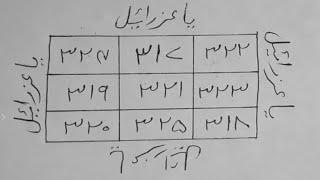 یا عزرائیل
یا عزرائیل
یا عزرائیل
۳۲۲ ۳۱۷ ۳۲۴
۳۲۳ ۳۲۱ ۳۱۹
۳۱۸ ۳۲۵ ۳۲۰